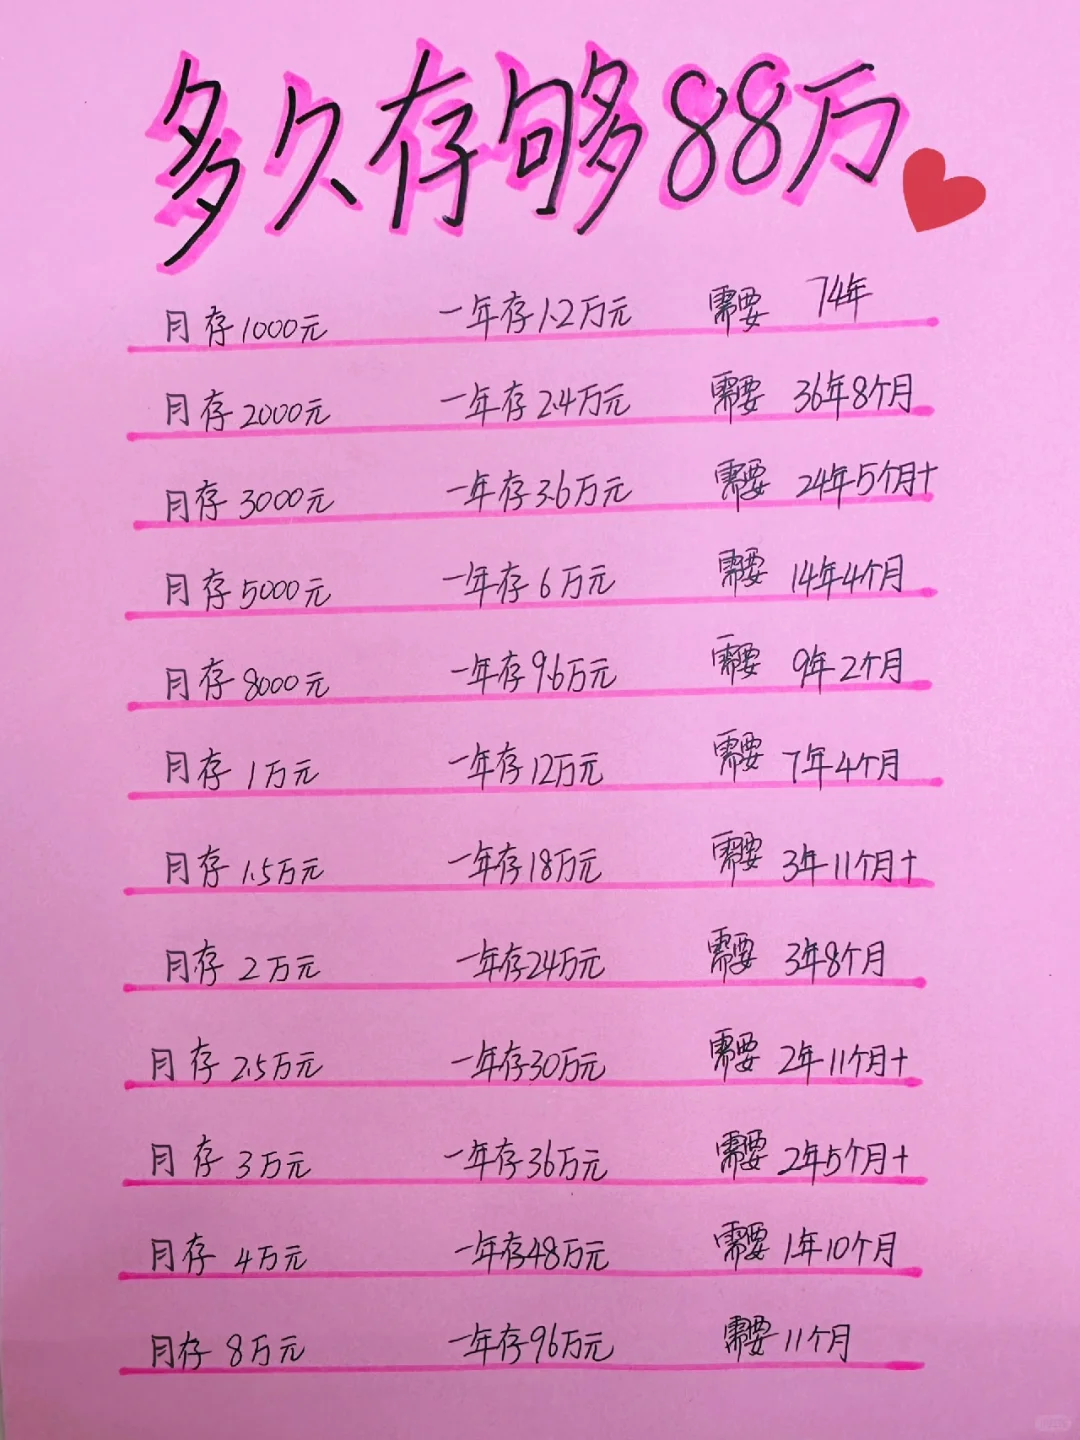 多久存够88万
月存1000元 一年存1.2万元 需要 74年
月存2000元 一年存2.4万元 需要 36年8个月
月存3000元 一年存3.6万元 需要 24年5个月+
月存5000元 一年存6万元 需要 14年4个月
月存8000元 一年存9.6万元 需要 9年2个月
月存1万元 一年存12万元 需要 7年4个月
月存1.5万元 一年存18万元 需要 3年11个月+
月存2万元 一年存24万元 需要 3年8个月
月存2.5万元 一年存30万元 需要 2年11个月+
月存3万元 一年存36万元 需要 2年5个月+
月存4万元 一年存48万元 需要 1年10个月
月存8万元 一年存96万元 需要 11个月